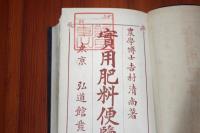 農學博士吉村清尚著
實用肥料便覽
東京 弘道館發